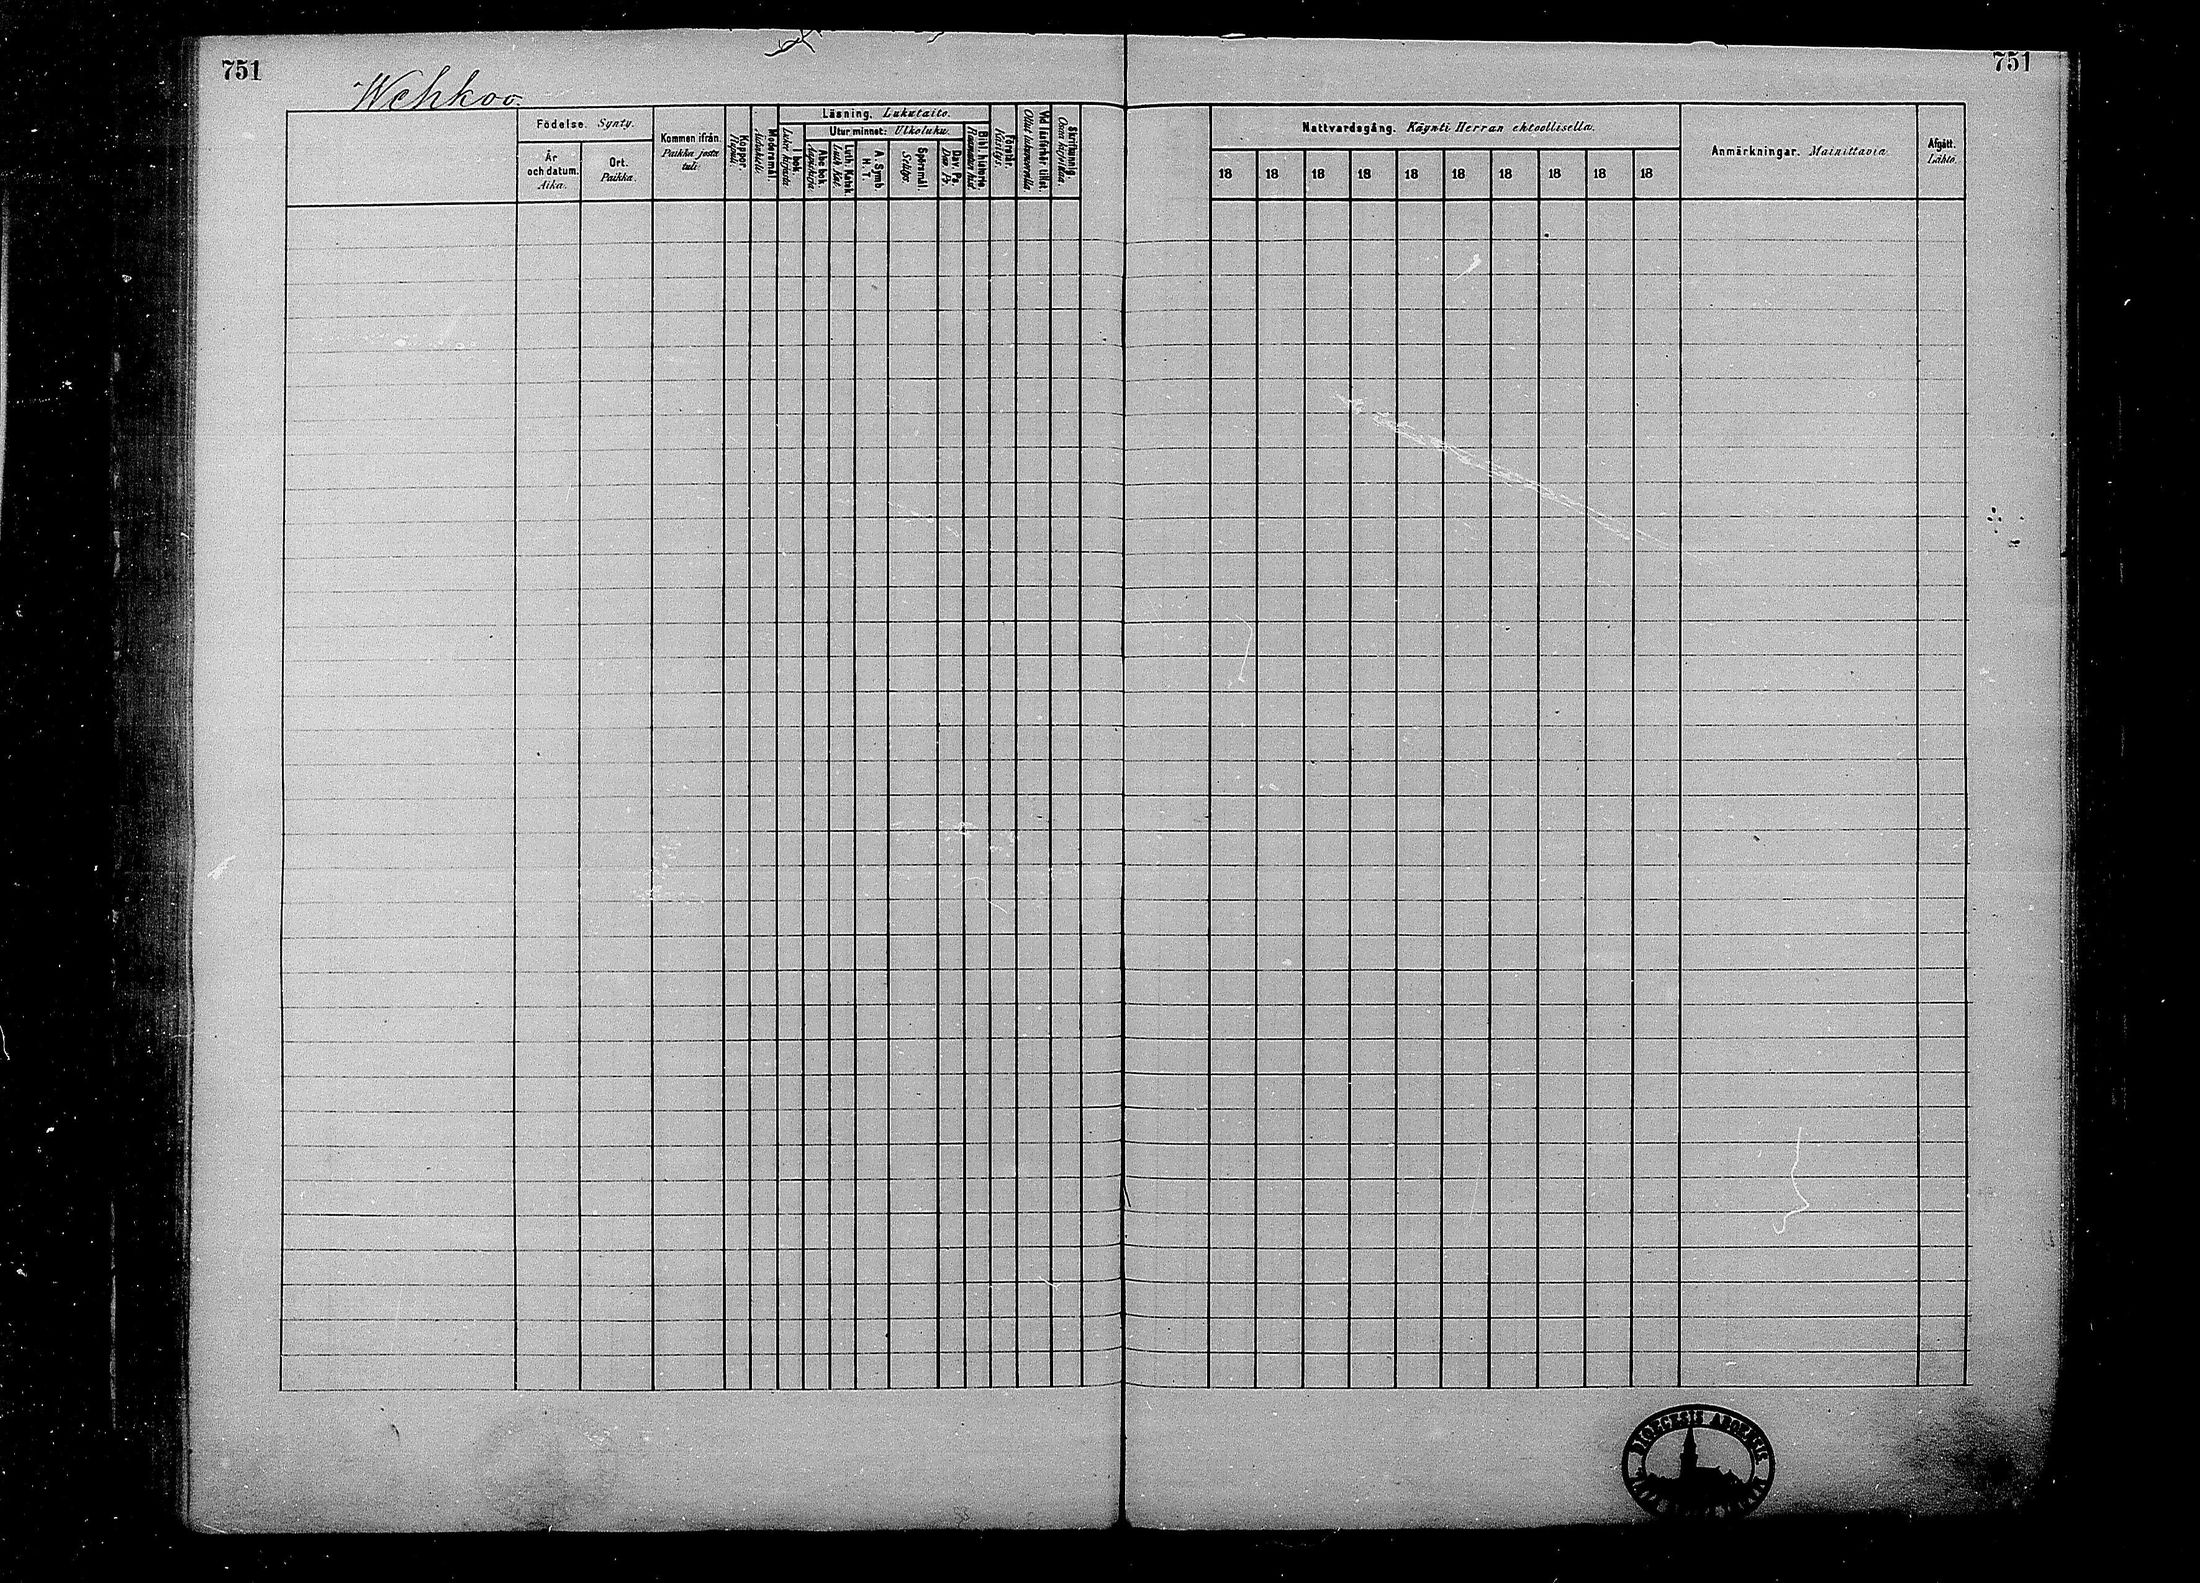 751
751
Wehkoo.
Födelse. Synty.
År och datum. Aika.
Ort. Paikka.
Kommen ifrån. Paikka josta tuli.
Koppor. Rupuli.
Modersmål. Äidinkieli.
Läsning. Lukutaito.
I bok. Lukee kirjasta.
Utur minnet: Ulkoluku.
Abc bok. Aapiskirja
Luth. Katek. Luth. Kat.
A. Symb. H. T.
Spörsmål. Selitys.
Dav. Ps. Dav. Ps.
Bibl. historie. Raamatun hist.
Förstår. Käsitys.
Vid läsförhör tillst. Ollut lukuvuoroilla.
Skrifkunnig. Osaa kirjoittaa.
Nattvardsgång. Käynti Herran ehtoollisella.
18 18 18 18 18 18 18 18 18 18
Anmärkningar. Mainittavia.
Afgått. Lähtö.
DIOECESIS ABOENSIS